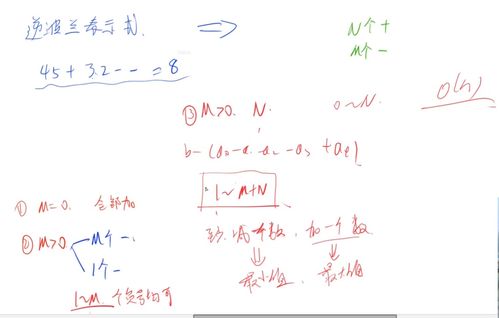 逆波兰表示式 ⟹
N个+
M个-
45+32-- = 8
③ M>0. N. 0~N. O(n)
b-(a₀-a₁-a₂-a₃+a₄)
1~M+N
① M=0. 全部加
② M>0 M个-.
1个-
1~M 个负号均可
至少减一个数, 加一个数
⇓ ⇓
最小值, 最大值